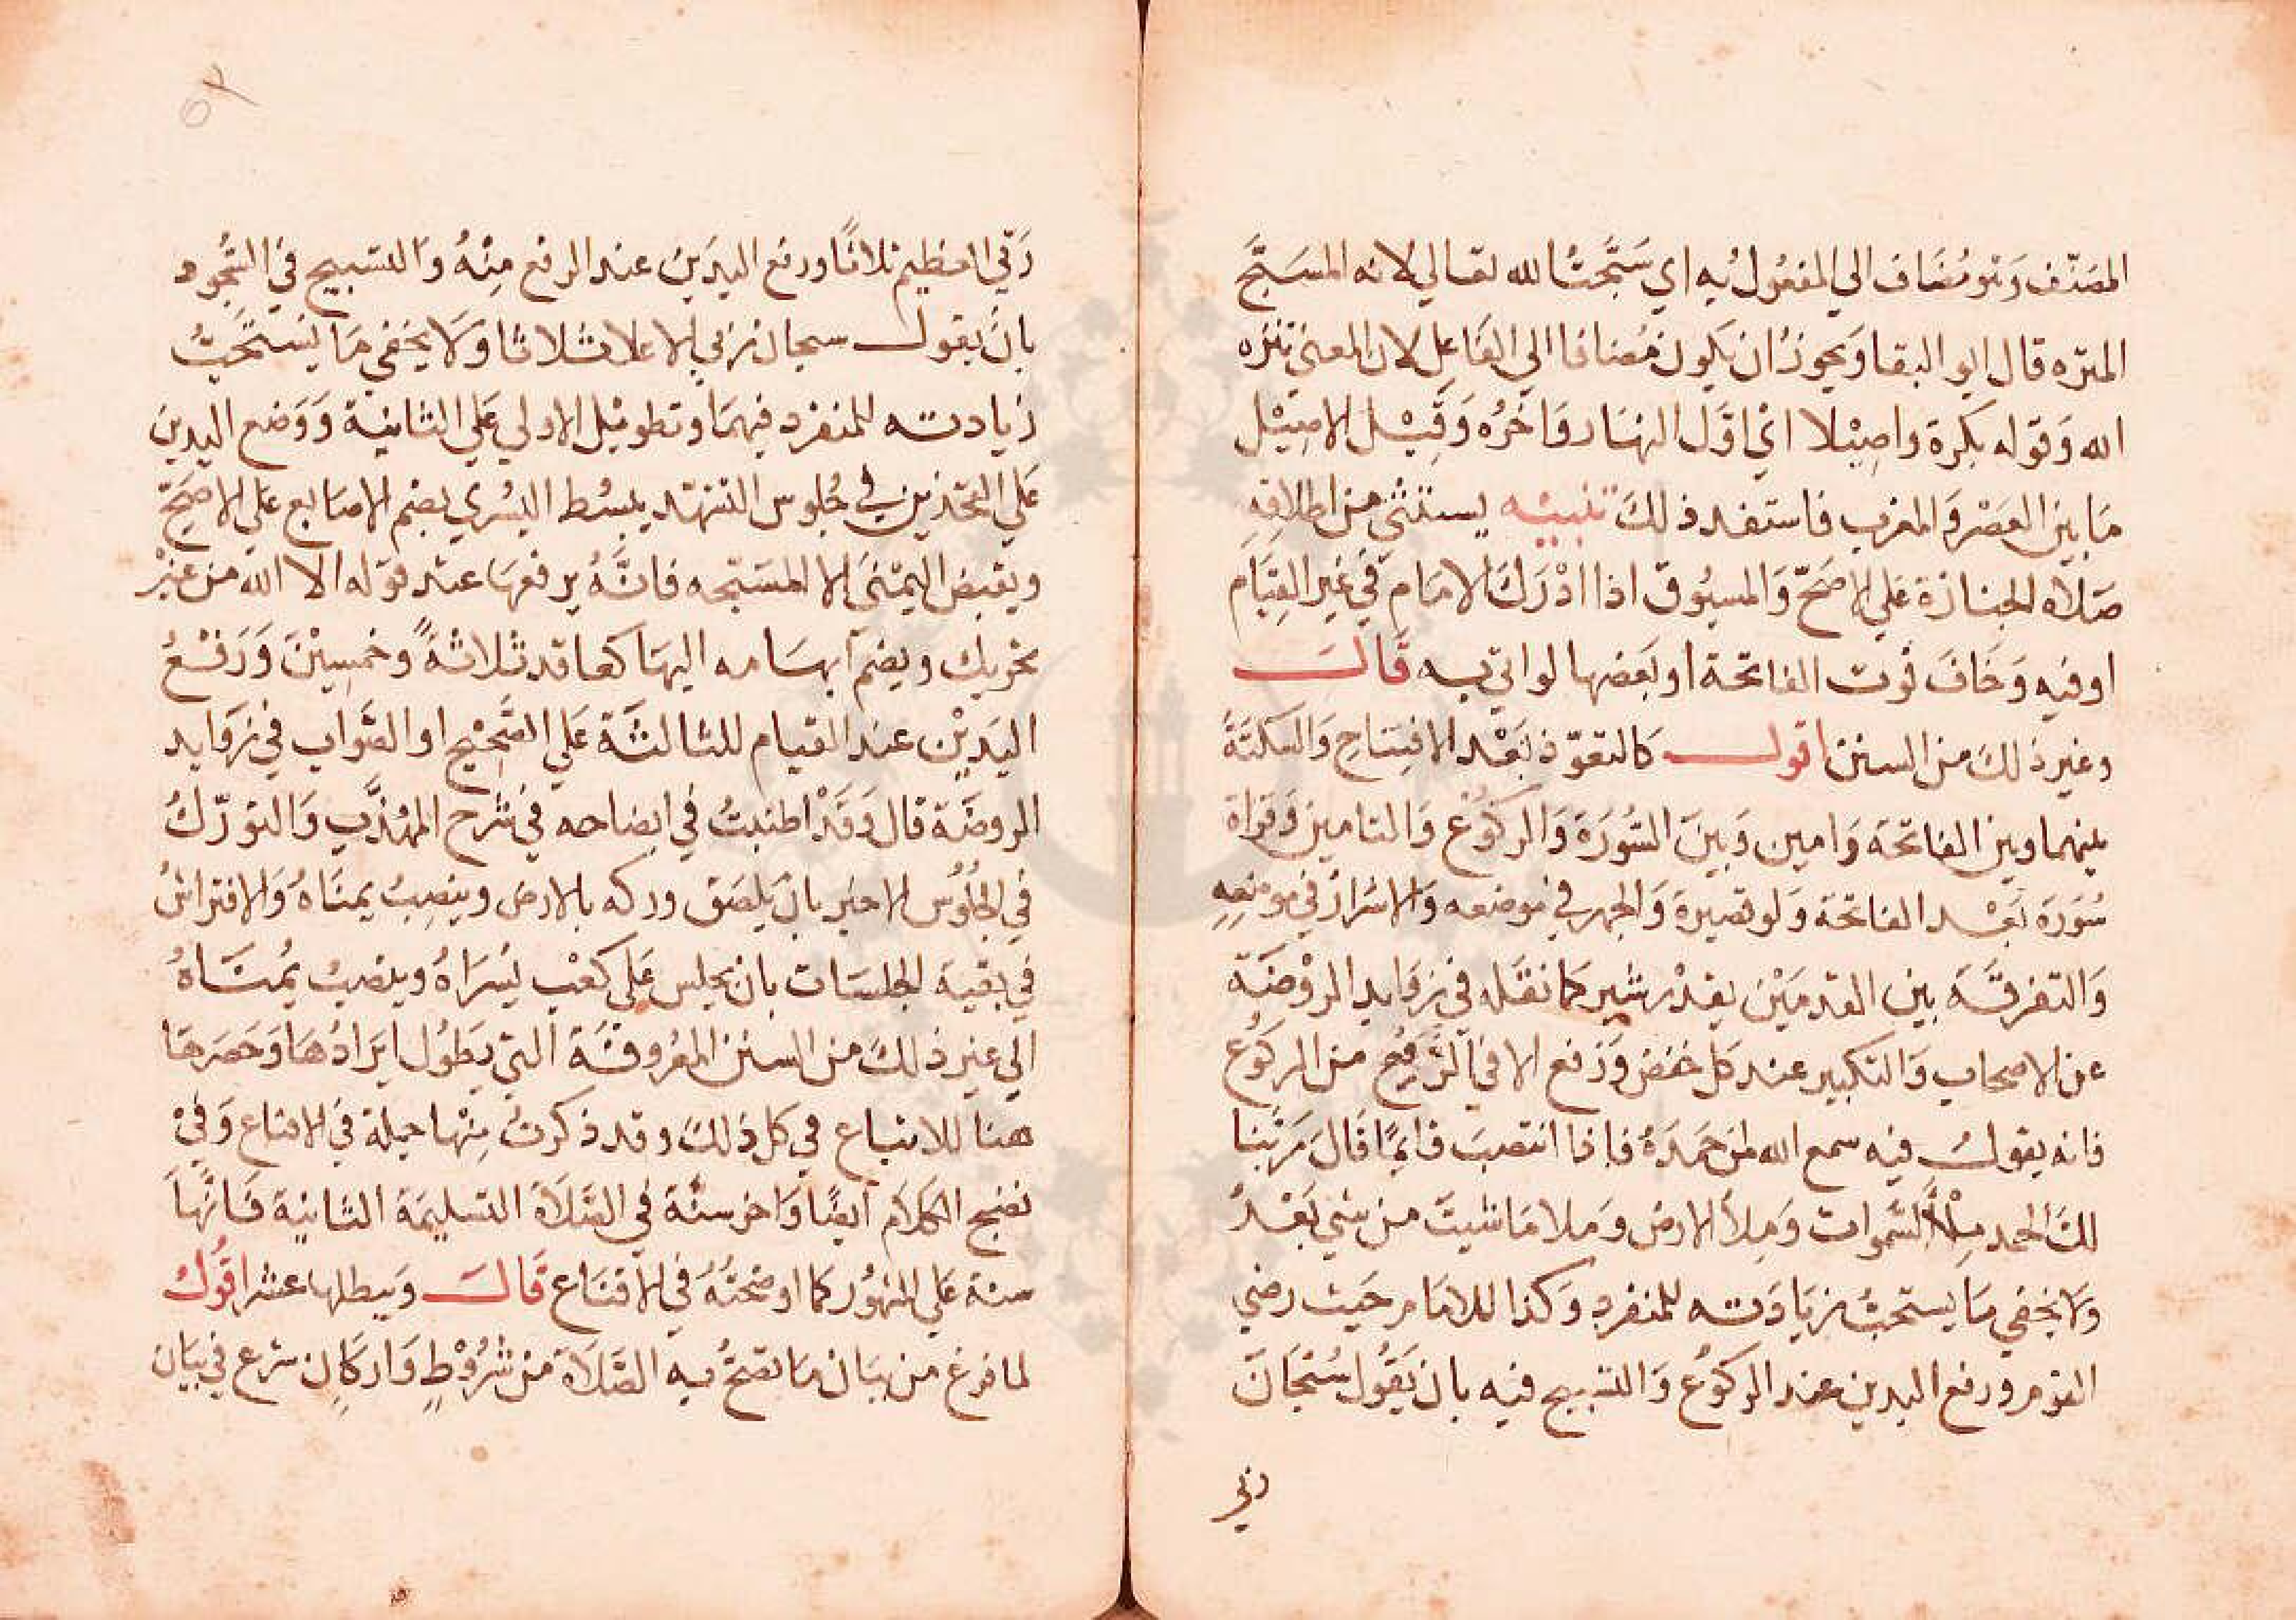 المصنف وهو مُضَاف الي المفعُول به اي سَبَّحتُ الله تعالي لانه المسَبَّح
المنزه قال ابو البقا وَيجوزُ ان يكون مُضافا الي الفَاعل لان المعني تنزه
الله وَقوله بكرة واصِيْلا ايْ اوَّل النهَار وَاخرُه وَقيْل الاصِيْل
مَا بين العَصْر وَالمغرب فاستفد ذلكَ تنبيْه يستثني من اطلاقِهِ
صَلاه الجنازة عَلي الاصَحّ وَالمسبُوق اذا ادْرَكَ الامَام في غير القيَام
اوفيه وَخَافَ فوت الفاتحة او بَعضها لو اتي به قَالَ
وغير ذلكَ من السنن اقول كالتعوّذ بَعْد الافتتاح وَالسكتَة
بينهما وبين الفاتحة وَامين وَبينَ السُّورَة وَالركوُع وَالتامين وَقراة
سُورَة بَعْد الفاتحة وَلو قصيرة وَالجهر في موضعه وَالاسْرَار في موضعِهِ
وَالتفرقَة بين القدمَيْن بقدْر شبر كما نقله في زوَايد الروْضَة
عن الاصحاب وَالتكبير عند كل خفض وَرفع الا في الرَّفع من الركوُع
فانه يقولُ فيه سمع الله لمن حَمدَهُ فاذا انتصبَ قايمًا قَالَ رَبّنا
لكَ الحمد مِلأ السَّموات وَمِلأ الارض وَملا مَا شيتَ من شي بَعْدُ
وَلا يخفي مَا يستحبُ زيَادَته للمنفرد وَكذا للامَام حَيث رضي
القوم ورفع اليدين عند الركوُع وَالتسبيح فيه بان يَقُول سُبْحَانَ
ربي
رَبّي العَظيم ثلاثًا ورفع اليدَين عند الرفع مِنْهُ وَالتسبيح في السُّجُود
بان يقول سبحان ربي الاعلا ثلاثا وَلا يخفي مَا يسْتحَبُّ
زيادته للمنفرد فيهمَا وتطويْل الاولي عَلي الثانيَة وَوَضع اليدين
عَلي الفخذين في جُلوس التشهّد يبسُط اليسُري بضم الاصَابع عَلي الاصَحّ
ويقبض اليمْنَي الا المسَبّحه فانَّهُ يرفعهَا عند قوله الا الله من غيْر
تحريك ويضم ابهَامه اليهَا كعاقد ثلاثةً وخمسِيْنَ وَرَفْعُ
اليَديْن عند القيام للثالثَة عَلي الصَّحِيْح او الصَّوَاب في زوَايد
الروضَة قال وَقَدْ اطنبتُ في ايضاحه في شرْح المهُذّب وَالتورّكُ
في الجُلوُس الاخير بان يَلصَق وركه بالارض وينصِبُ يمنَاهُ وَالافتراشُ
في بقية الجلسَات بان يجلس عَلي كعْب يُسرَاهُ وينصبُ يمُنَاهُ
الي غير ذلكَ من السنن المعُروفَة التي يطوُل ايرَادُهَا وَحَصرهَا
هنا للاتباع في كل ذلكَ وقد ذكرتُ مِنْها جملة في الاقناع وَفيْ
نضج الكلام ايضًا وَاخر سنّة في الصَّلَاة التسليمَة الثانيَة فَانَّهَا
سنة عَلي المشهُور كما اوضحتُهُ في الاقنَاع قَالَ وَيبطلها عشر اقُولُ
لما فرغ من بيَان مَا تصحُّ به الصَّلَاة من شُرُوْطٍ وَاركَانٍ شرع في بيَان